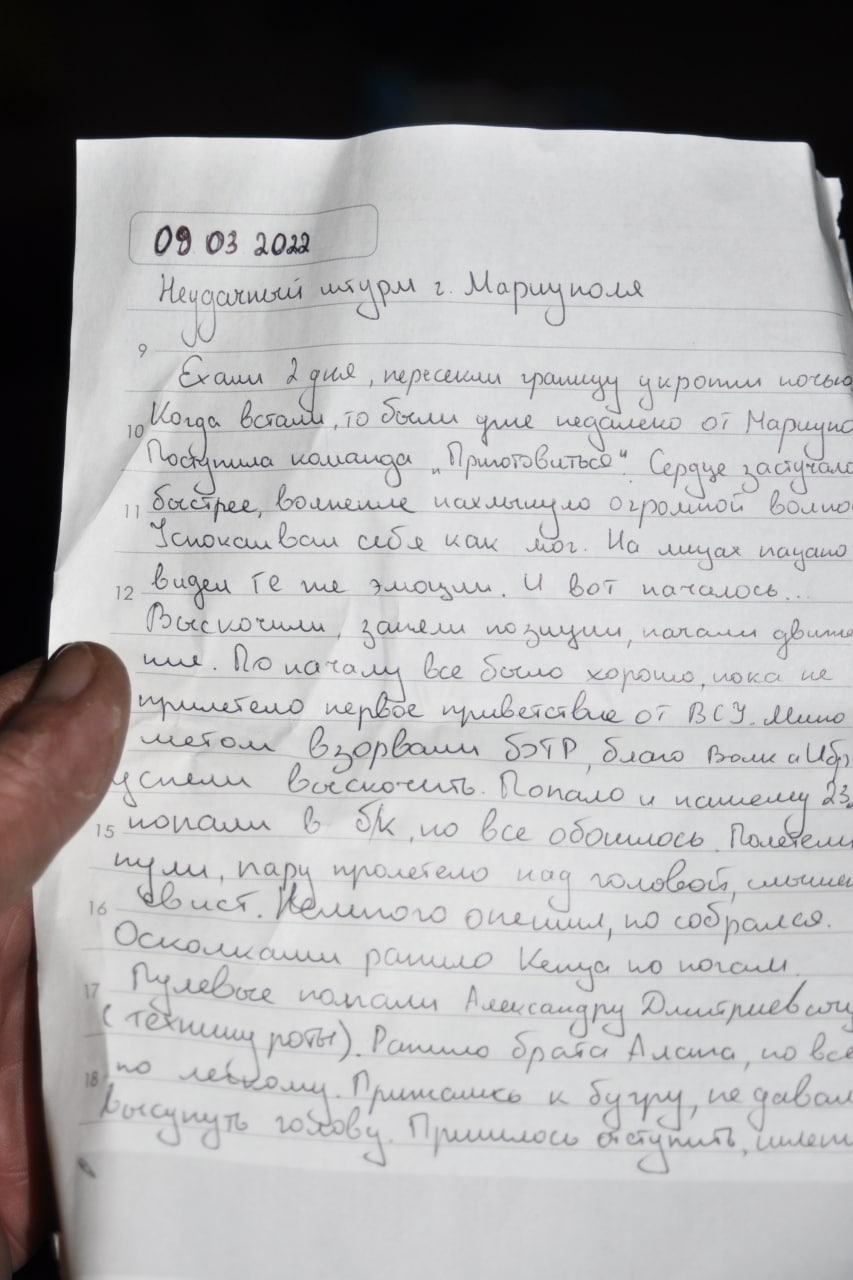 09 03 2022
Неудачный штурм г. Мариуполя
9
Ехали 2 дня, пересекли границу укропии ночью
10 Когда встали, то были уже недалеко от Мариупо
Поступила команда „Приготовиться“. Сердце застучало
11 быстрее, волнение нахлынуло огромной волно
Успокаивал себя как мог. На лицах пацано
12 видел те же эмоции. И вот началось...
Выскочили, заняли позиции, начали движе
ние. По началу все было хорошо, пока не
прилетело первое приветствие от ВСУ. Мино
метом взорвали БЭТР, благо Волк и
успели выскочить. Попало и нашему 23
15 попали в б/к, но все обошлось. Полетели
пули, пару пролетело над головой, слышен
16 свист. Немного опешил, но собрался.
Осколками ранило Кенца по ногам.
17 Пулевые попали Александру Дмитриевичу
(технишу роты). Ранило брата Алана, но все
18 по легкому. Прижались к бугру, не давал
высунуть голову. Пришлось отступить,